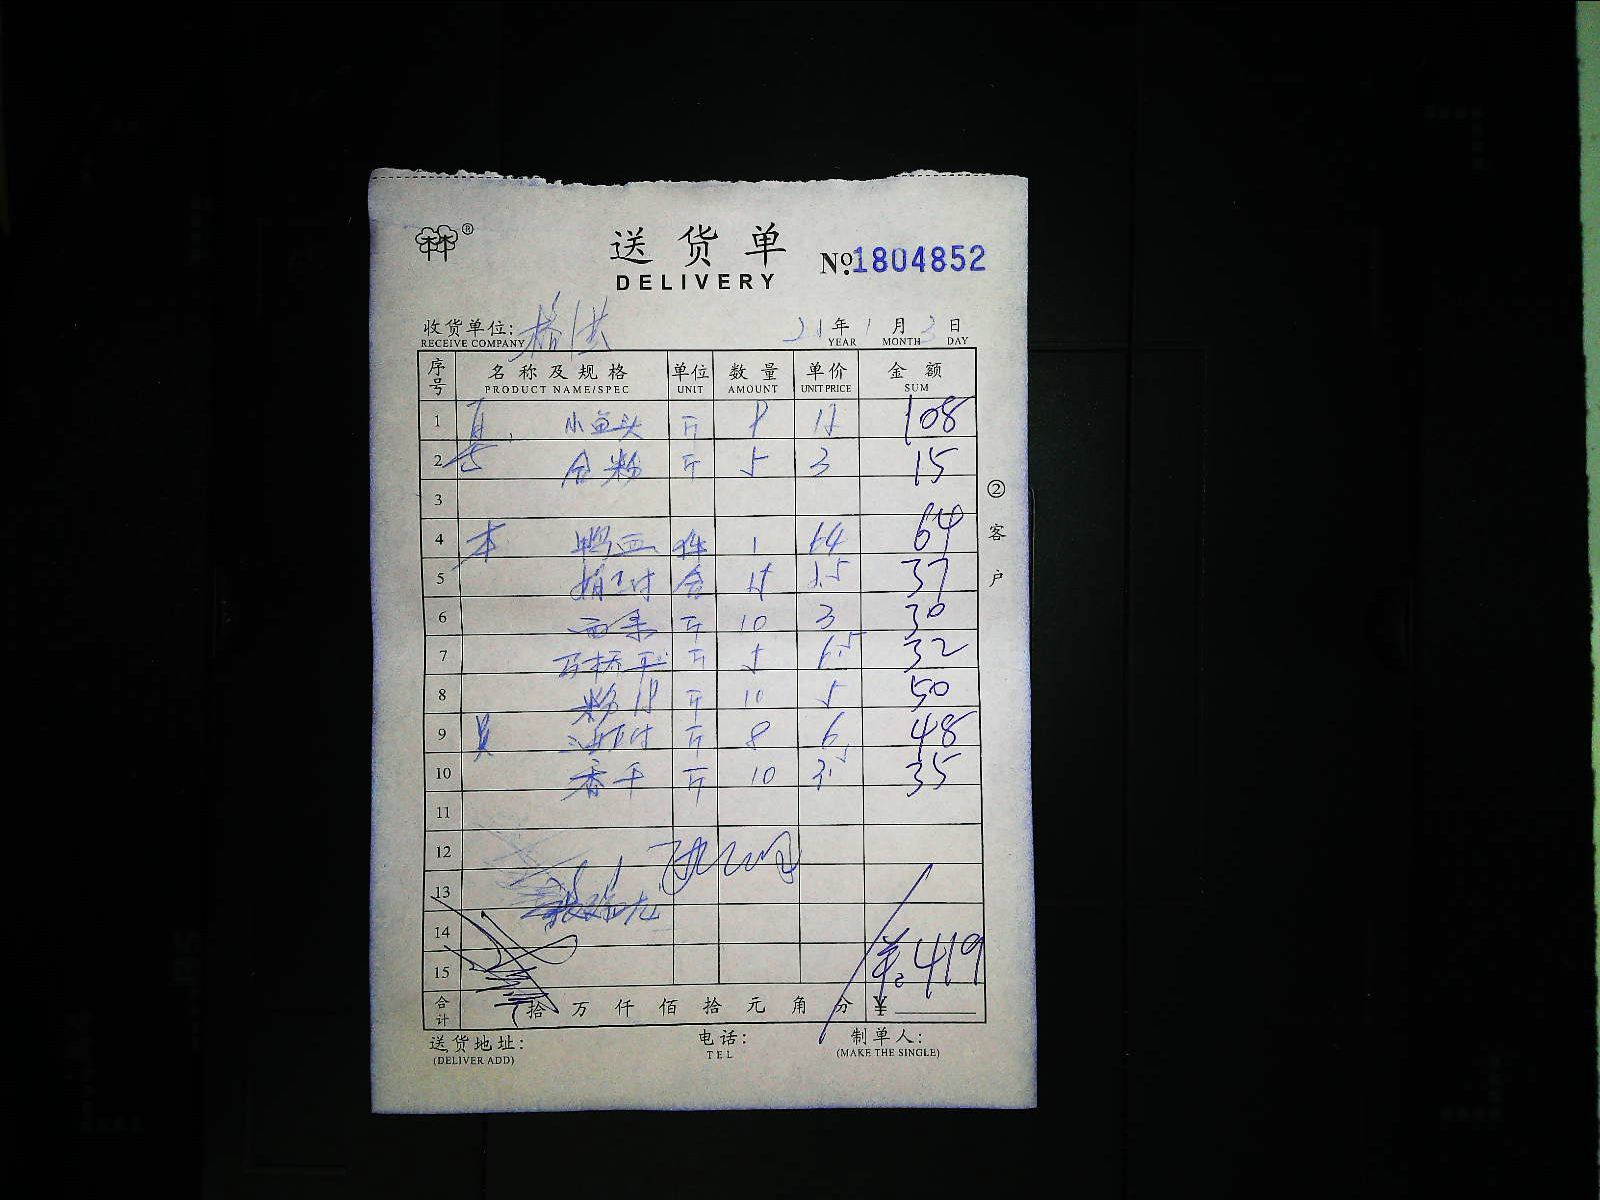 林®
送货单
DELIVERY
№1804852
收货单位:
RECEIVE COMPANY
21年1月3日
YEAR MONTH DAY
序号 名称及规格 单位 数量 单价 金额
PRODUCT NAME/SPEC UNIT AMOUNT UNIT PRICE SUM
1 小鱼头 斤 9 12 108
2 合粉 斤 5 3 15
3
4 本 鸭血 件 1 64 64
5 合 15 2.5 37
6 斤 10 3 30
7 斤 5 6.5 32
8 斤 10 5 50
9 斤 8 6 48
10 香干 斤 10 3.5 35
11
12
13
14
15 419
合计 拾万仟佰拾元角分 ¥
送货地址: 电话: 制单人:
(DELIVER ADD) TEL (MAKE THE SINGLE)
②客户